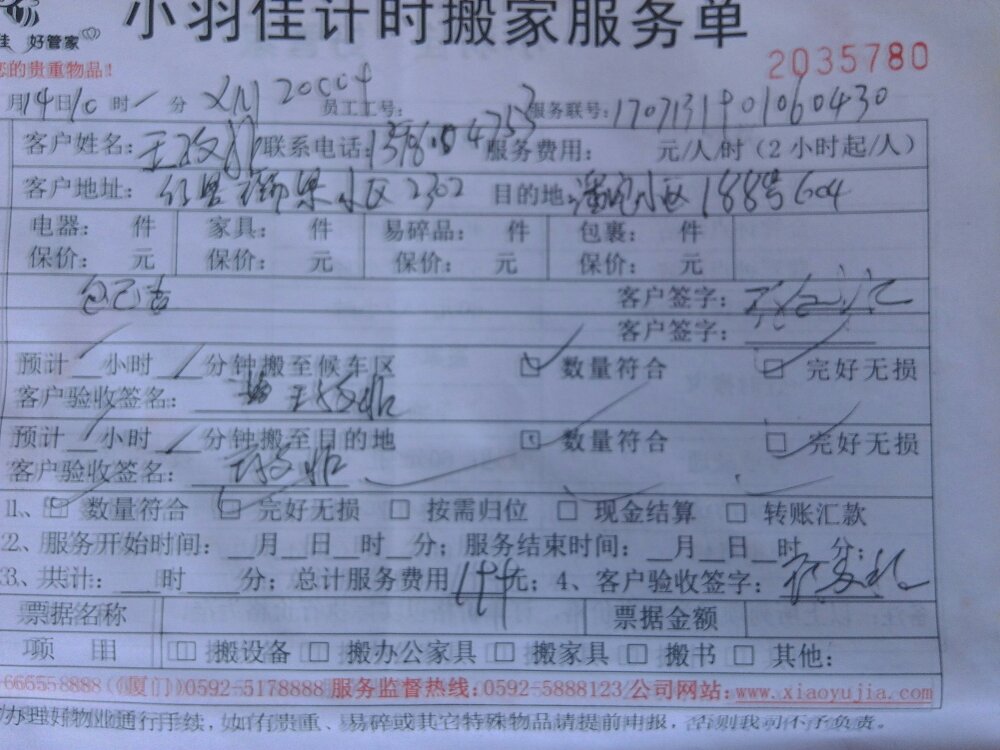 小羽佳计时搬家服务单
佳 好管家
您的贵重物品!
2035780
月14日10时 分 员工工号: 服务联号:1707131901060430
客户姓名: 联系电话: 服务费用: 元/人/时(2小时起/人)
客户地址: 小区2302 目的地: 小区188号604
电器: 件 家具: 件 易碎品: 件 包裹: 件
保价: 元 保价: 元 保价: 元 保价: 元
客户签字:
客户签字:
预计 小时 分钟搬至候车区 数量符合 完好无损
客户验收签名:
预计 小时 分钟搬至目的地 数量符合 完好无损
客户验收签名:
1、 数量符合 完好无损 按需归位 现金结算 转账汇款
2、服务开始时间: 月 日 时 分; 服务结束时间: 月 日 时 分;
3、共计: 时 分; 总计服务费用 元; 4、客户验收签字:
票据名称 票据金额
项 目 搬设备 搬办公家具 搬家具 搬书 其他:
666558888 (厦门)0592-5178888 服务监督热线:0592-5888123/公司网站:www.xiaoyujia.com
办理好物业通行手续,如有贵重、易碎或其它特殊物品请提前申报,否则我司不予负责。